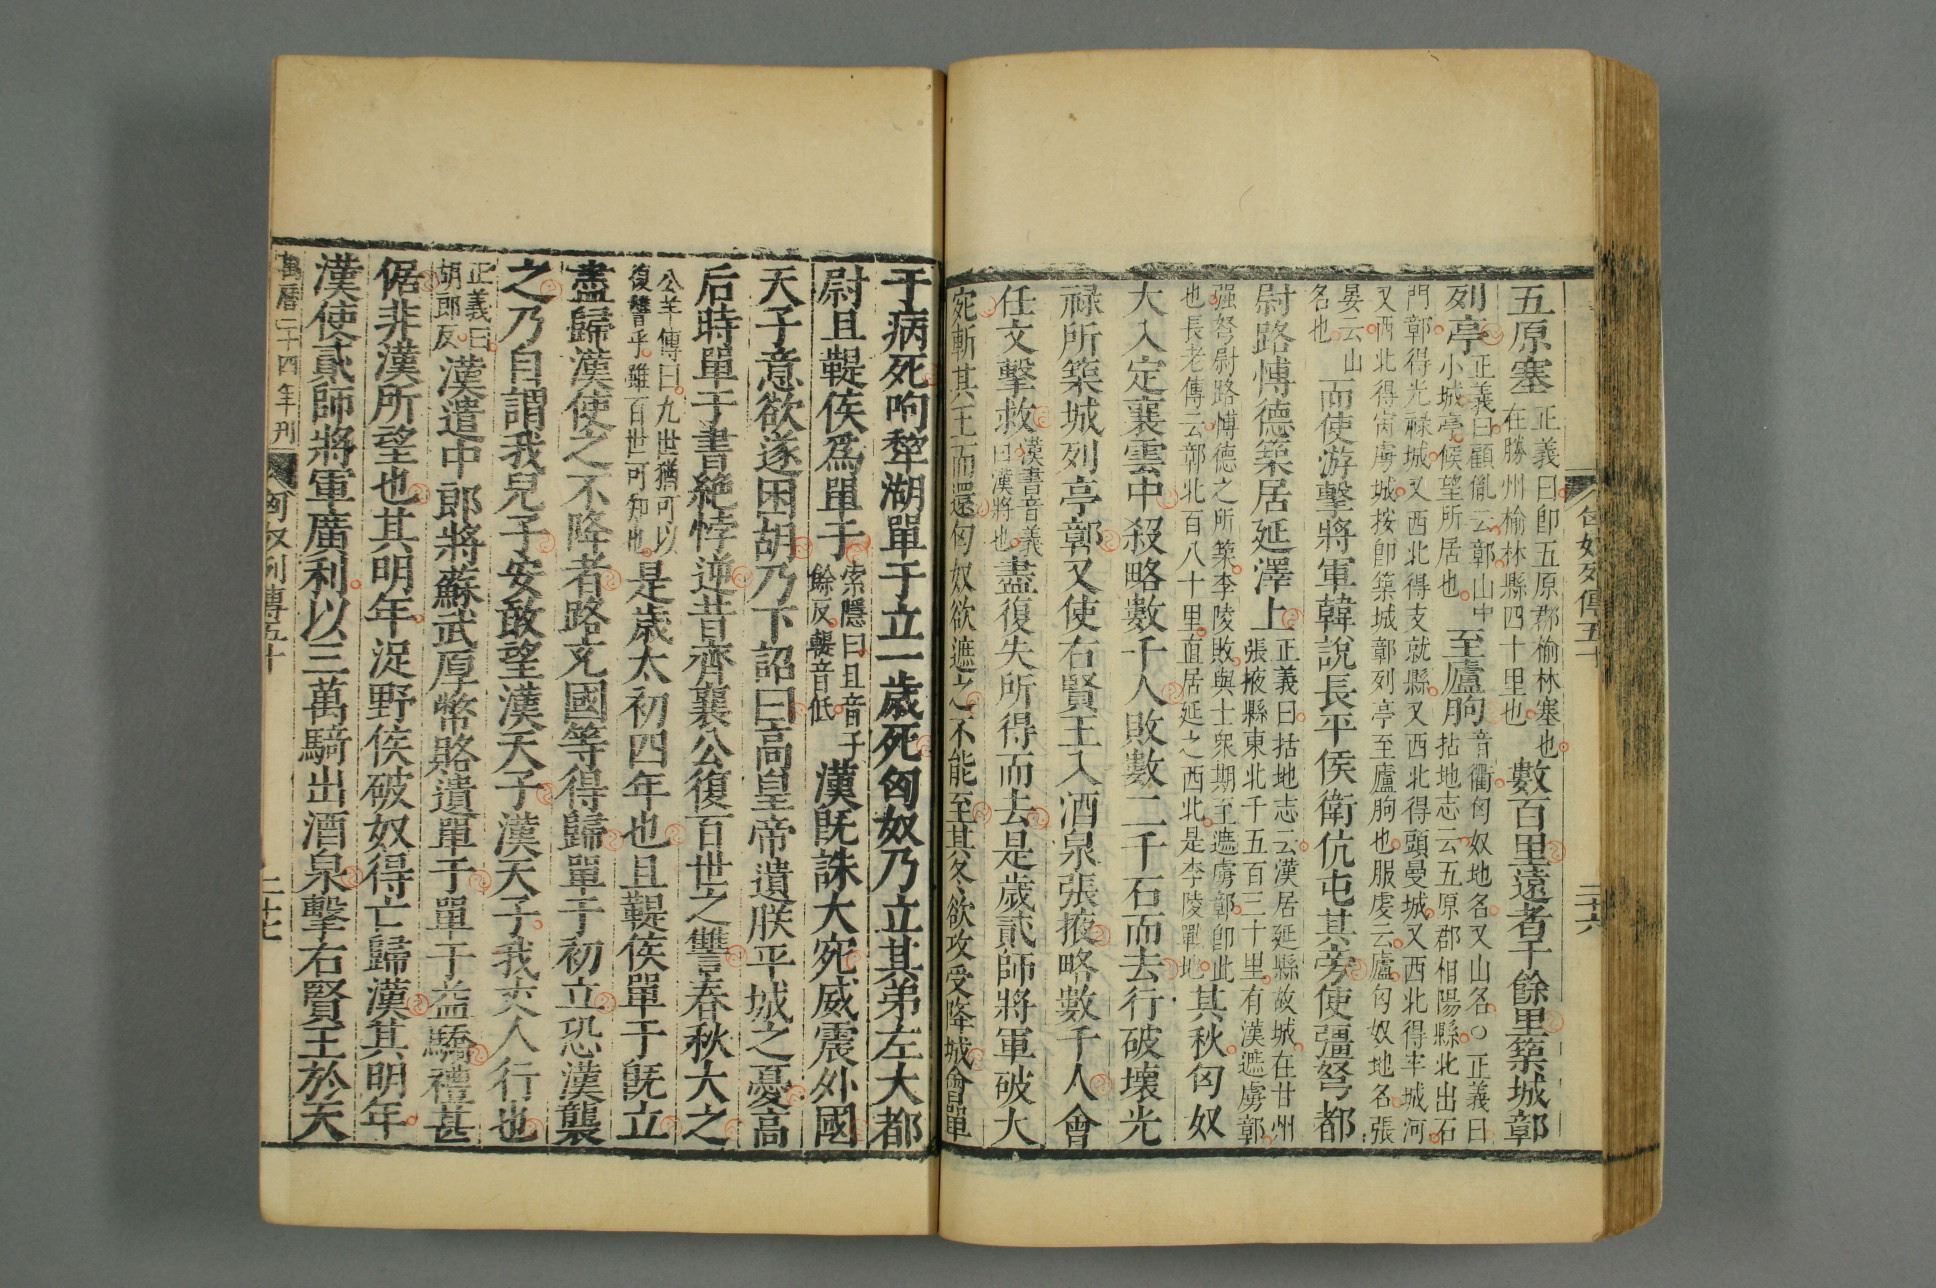 五原塞正義曰卽五原郡榆林塞也在勝州榆林縣四十里也數百里遠者千餘里築城鄣
列亭正義曰顧胤云鄣山中小城亭候望所居也至廬朐音衢匈奴地名又山名○正義曰括地志云五原郡相陽縣北出石
門鄣得光祿城又西北得支就縣又西北得頭曼城又西北得牢城河又西北得宥虜城按卽築城鄣列亭至廬朐也服虔云廬匈奴地名張
晏云山名也而使游擊將軍韓說長平侯衛伉屯其旁使彊弩都
尉路愽德築居延澤上正義曰括地志云漢居延縣故城在甘州張掖縣東北千五百三十里有漢遮虜鄣
强弩尉路愽德之所築李陵敗與士衆期至遮虜鄣卽此也長老傳云鄣北百八十里直居延之西北是李陵戰地其秋匈奴
大入定襄雲中殺略數千人敗數二千石而去行破壞光
祿所築城列亭鄣又使右賢王入酒泉張掖略數千人會
任文擊救漢書音義曰漢將也盡復失所得而去是歲貳師將軍破大
宛斬其王而還匈奴欲遮之不能至其冬欲攻受降城會單
于病死呴犂湖單于立一歲死匈奴乃立其弟左大都
尉且鞮侯爲單于索隱曰且音子餘反鞮音低漢旣誅大宛威震外國
天子意欲遂困胡乃下詔曰高皇帝遺朕平城之憂高
后時單于書絶悖逆昔齊襄公復百世之讐春秋大之
公羊傳曰九世猶可以復讐乎雖百世可知也是歲太初四年也且鞮侯單于旣立
盡歸漢使之不降者路充國等得歸單于初立恐漢襲
之乃自謂我兒子安敢望漢天子漢天子我丈人行也
正義曰胡郎反漢遣中郎將蘇武厚幣賂遺單于單于益驕禮甚
倨非漢所望也其明年浞野侯破奴得亡歸漢其明年
漢使貳師將軍廣利以三萬騎出酒泉擊右賢王於天
萬曆二十四年刊 匈奴列傳五十 二十七